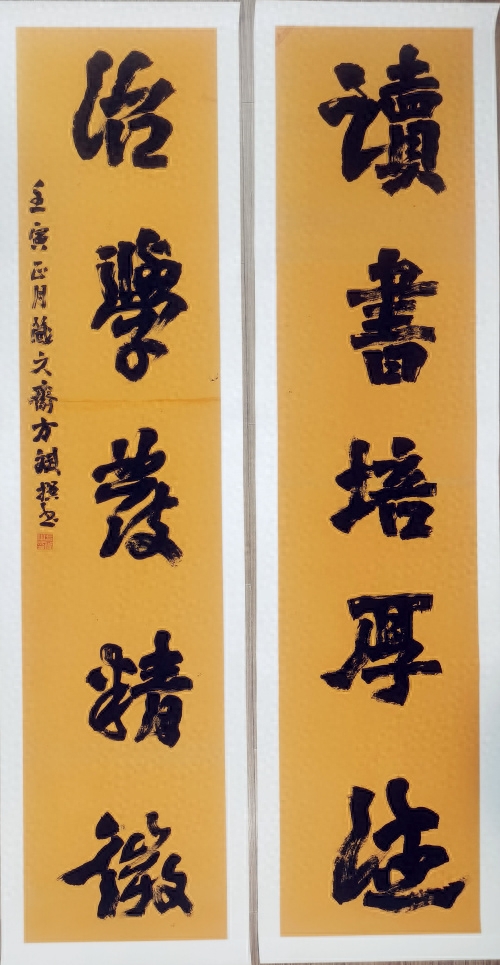 讀書培厚德
治學發精微
壬寅正月文齋方撰書